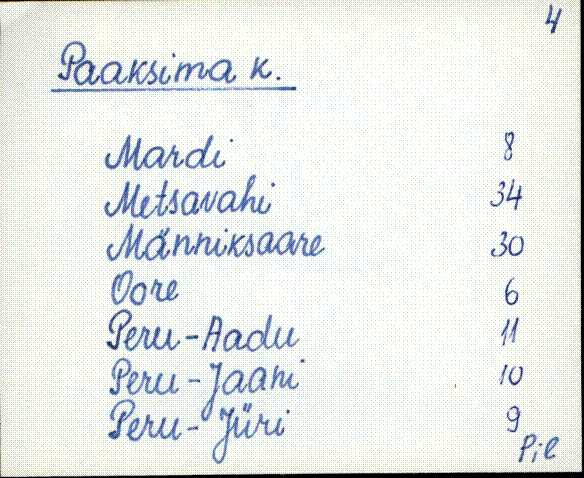 4
Paaksima k.
Mardi 8
Metsavahi 34
Männiksaare 30
Oore 6
Peru-Aadu 11
Peru-Jaani 10
Peru-Jüri 9
Pil